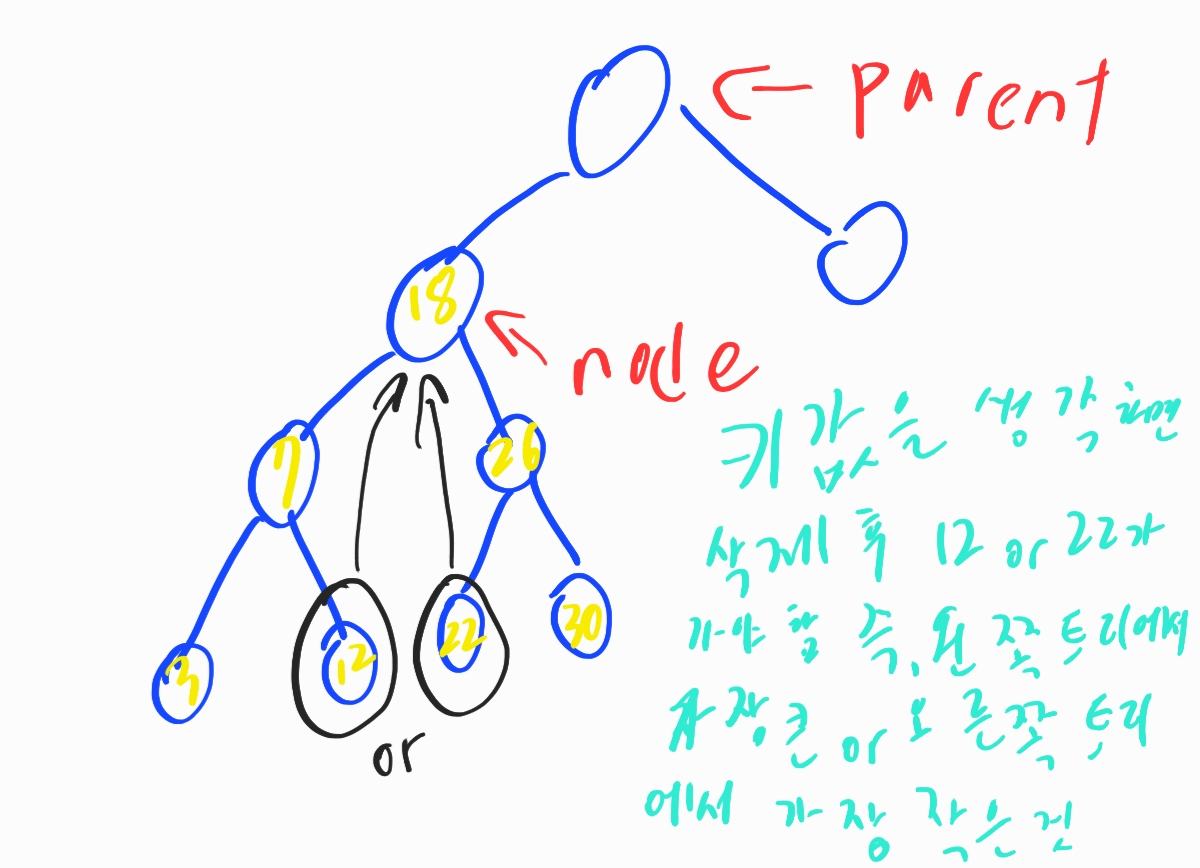 parent
18
node
7
26
3
12
22
30
or
키값을 생각하면
삭제 후 12 or 22가
가야 함 즉, 왼쪽 트리에서
가장 큰 or 오른쪽 트리
에서 가장 작은 건